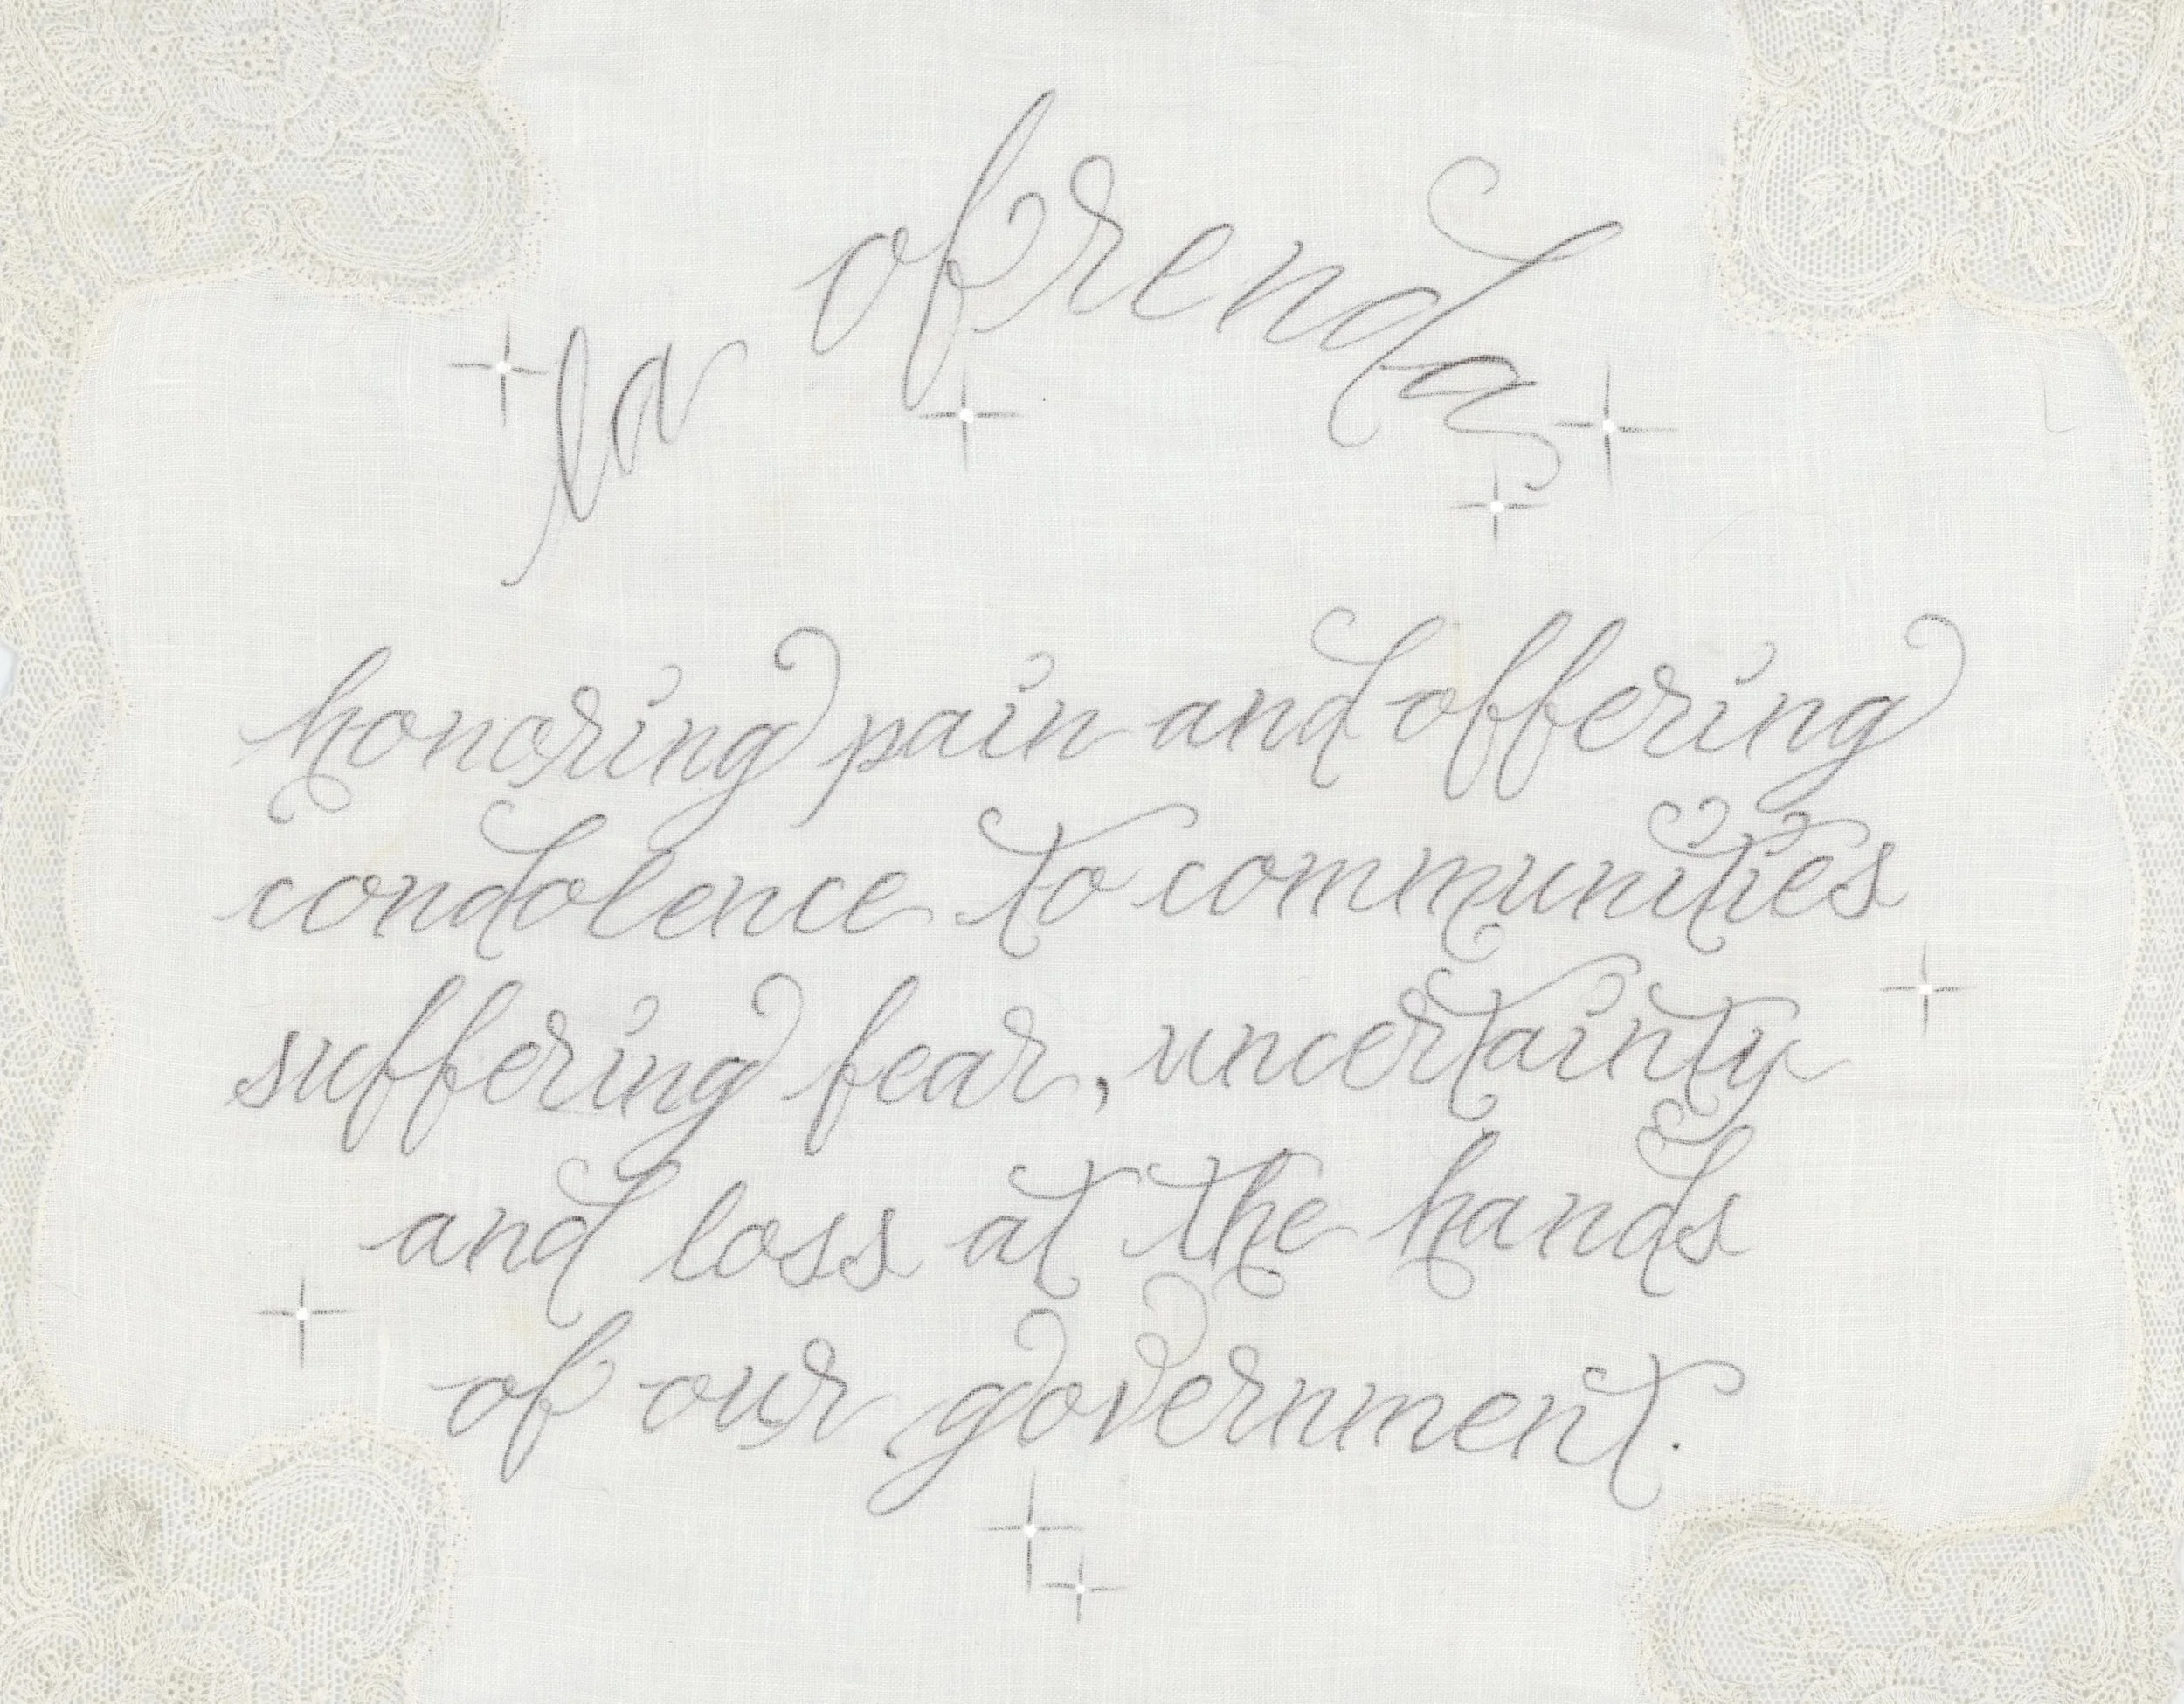 la ofrenda
honoring pain and offering
condolence to communities
suffering fear, uncertainty
and loss at the hands
of our government.